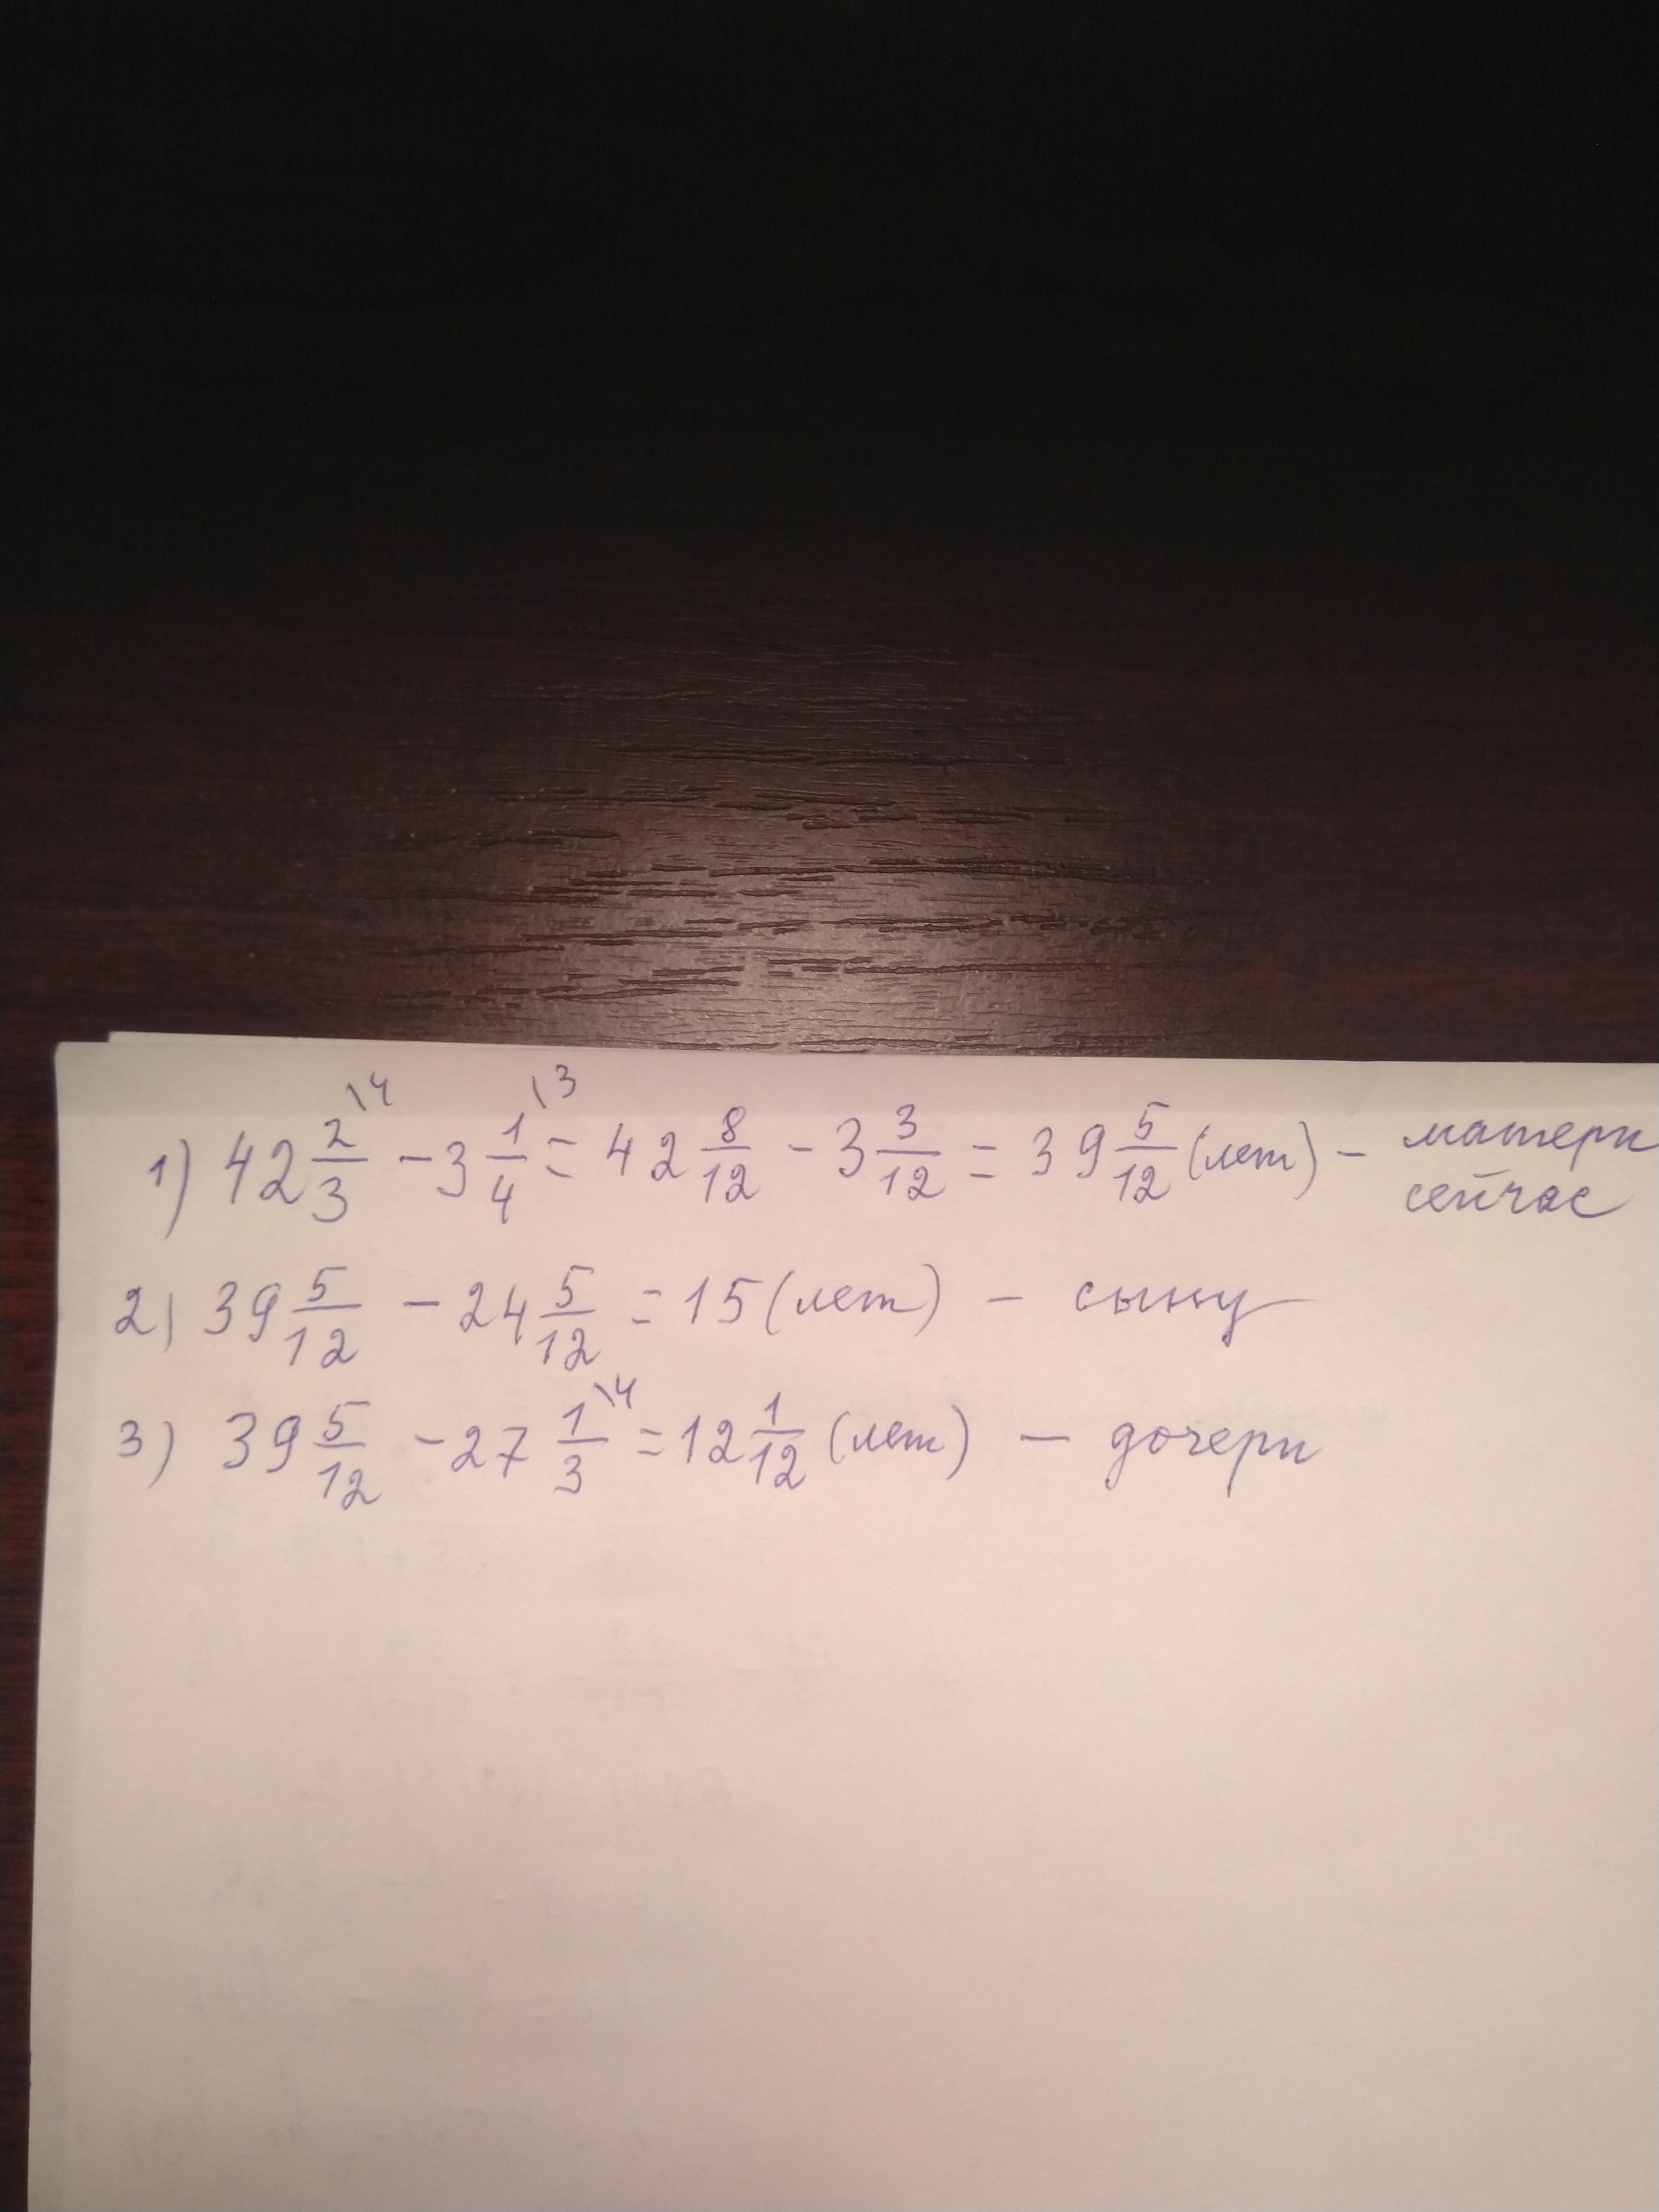 1) 42 2/3 \4 - 3 1/4 \3 = 42 8/12 - 3 3/12 = 39 5/12 (лет) - матери сейчас
2) 39 5/12 - 24 5/12 = 15 (лет) - сыну
3) 39 5/12 - 27 1/3 \4 = 12 1/12 (лет) - дочери